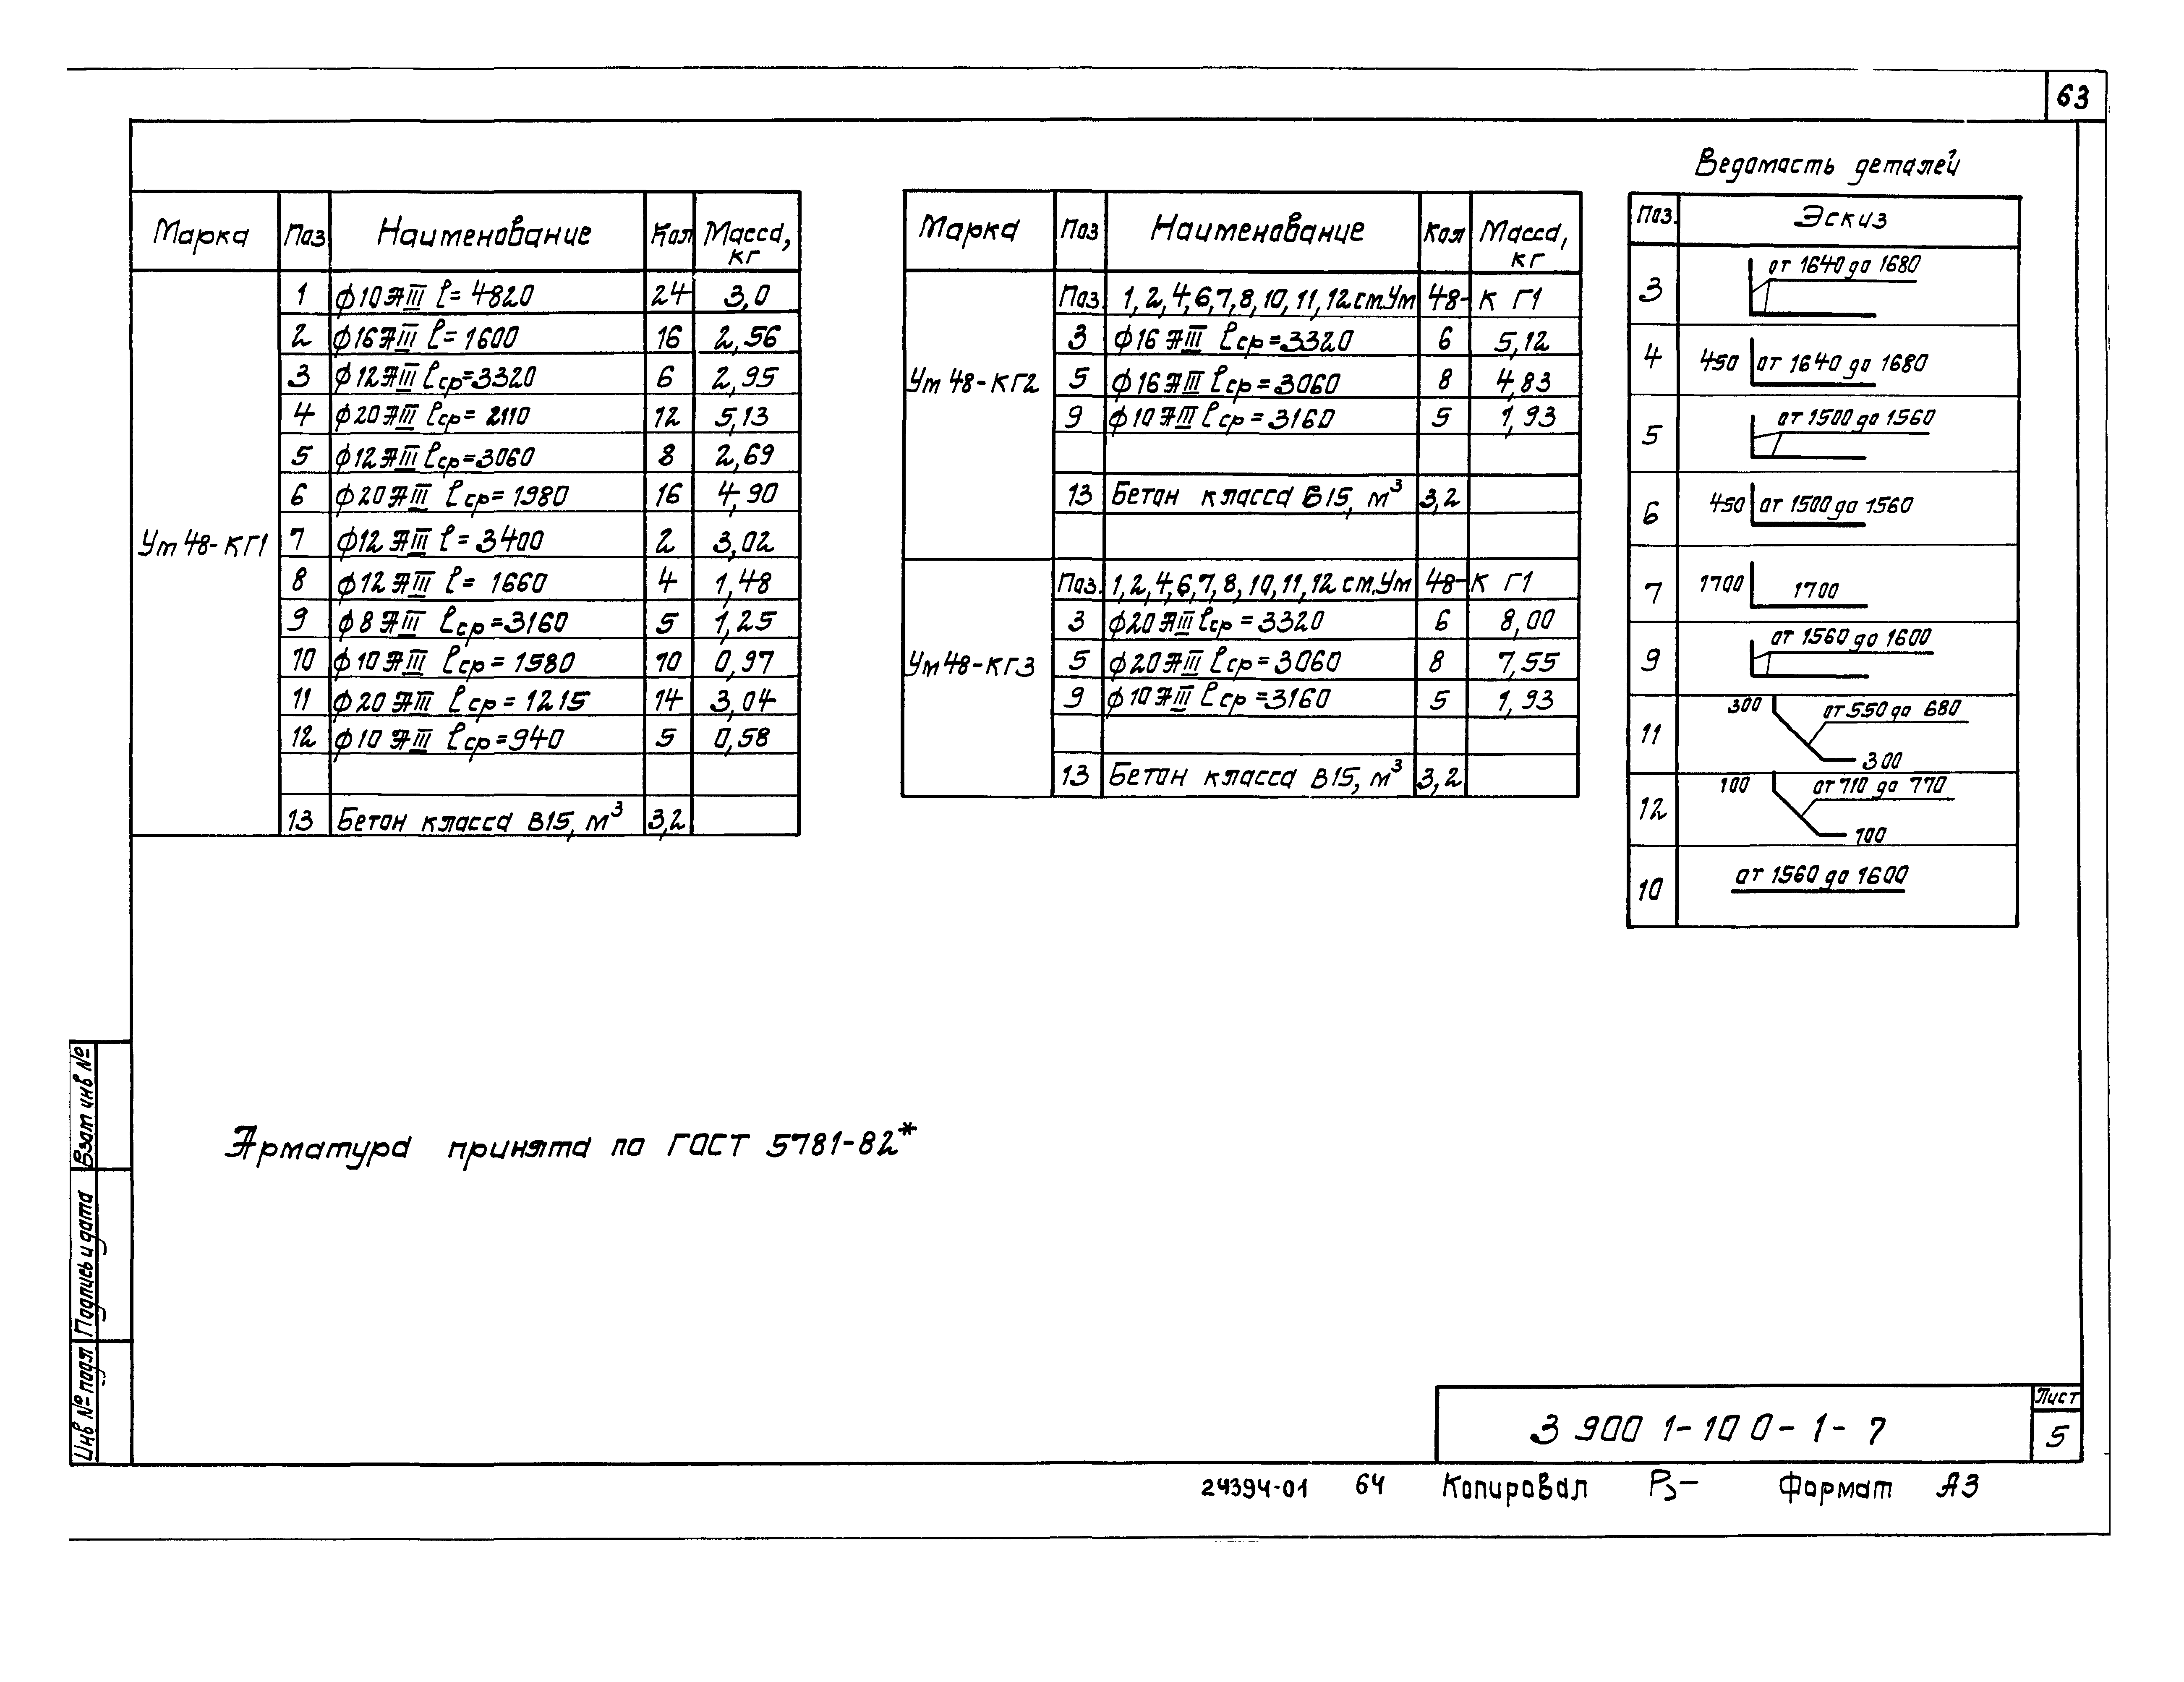 63
Марка Поз Наименование Кол Масса, кг
Ум 48-КГ1
1 ϕ10АIII ℓ=4820 24 3,0
2 ϕ16АIII ℓ=1600 16 2,56
3 ϕ12АIII ℓср=3320 6 2,95
4 ϕ20АIII ℓср=2110 12 5,13
5 ϕ12АIII ℓср=3060 8 2,69
6 ϕ20АIII ℓср=1980 16 4,90
7 ϕ12АIII ℓ=3400 2 3,02
8 ϕ12АIII ℓ=1660 4 1,48
9 ϕ8АIII ℓср=3160 5 1,25
10 ϕ10АIII ℓср=1580 10 0,97
11 ϕ20АIII ℓср=1215 14 3,04
12 ϕ10АIII ℓср=940 5 0,58
13 Бетон класса В15, м³ 3,2
Марка Поз Наименование Кол Масса, кг
Ум 48-КГ2
Поз. 1,2,4,6,7,8,10,11,12 см.Ум 48-К Г1
3 ϕ16АIII ℓср=3320 6 5,12
5 ϕ16АIII ℓср=3060 8 4,83
9 ϕ10АIII ℓср=3160 5 1,93
13 Бетон класса В15, м³ 3,2
Ум48-КГ3
Поз. 1,2,4,6,7,8,10,11,12 см.Ум 48-К Г1
3 ϕ20АIII ℓср=3320 6 8,00
5 ϕ20АIII ℓср=3060 8 7,55
9 ϕ10АIII ℓср=3160 5 1,93
13 Бетон класса В15, м³ 3,2
Ведомость деталей
Поз. Эскиз
3 от 1640 до 1680
4 450 от 1640 до 1680
5 от 1500 до 1560
6 450 от 1500 до 1560
7 1700 1700
9 от 1560 до 1600
11 300 от 550 до 680 300
12 100 от 710 до 770 100
10 от 1560 до 1600
Арматура принята по ГОСТ 5781-82*
Взам инв №
Подпись и дата
Инв № подл
3 900 1-10 0-1-7
Лист
5
24394-01 64 Копировал Формат А3